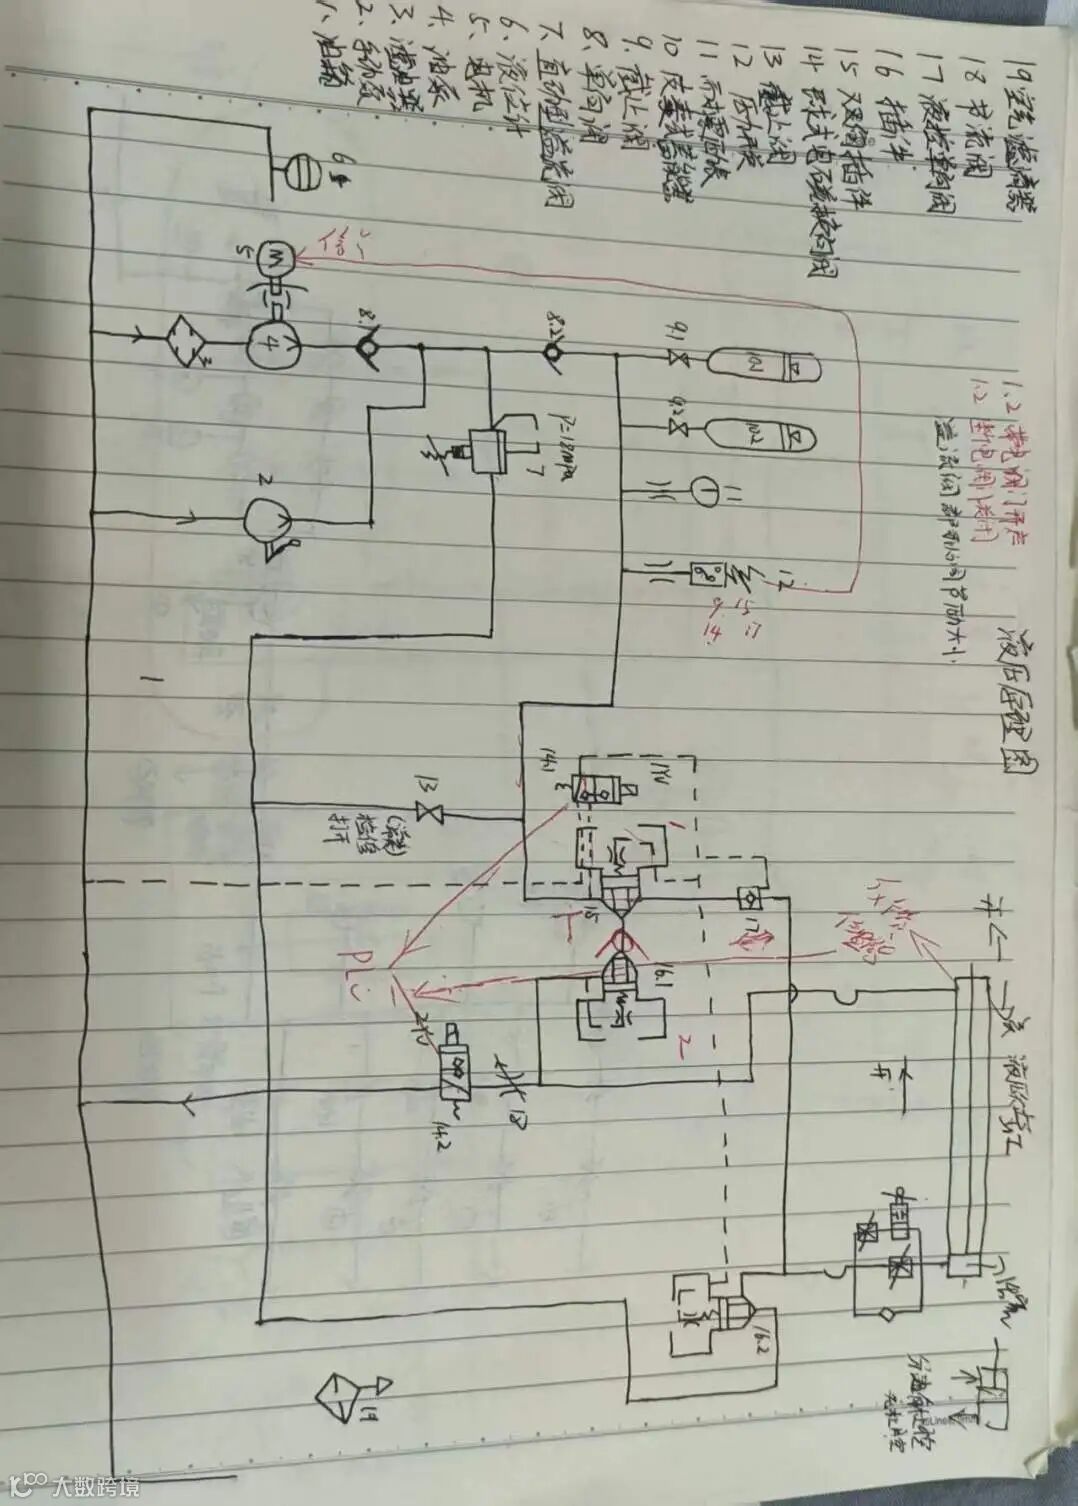 液压原理图
1. 油箱
2. 手动泵
3. 滤油器
4. 油泵
5. 电机
6. 液位计
7. 直动型溢流阀
8. 单向阀
9. 截止阀
10 皮囊式蓄能器
11 耐震压力表
12 压力开关
13 截止阀
14 球式电磁换向阀
15 双向插件
16 插件
17 液控单向阀
18 节流阀
19 空气滤清器
1.2 带电阀门开启
1.2 断电阀门关闭
6
5
M
3
4
8.1
2
8.2
P=18mpa
7
9.1
10.1
9.2
10.2
11
12
9 15
14 17
1
13
检修
打开
14.1
1YV
15
16.1
17
PLC
1
2
2YV
18
14.2
开
关
液压缸
16.2
19
大数跨境